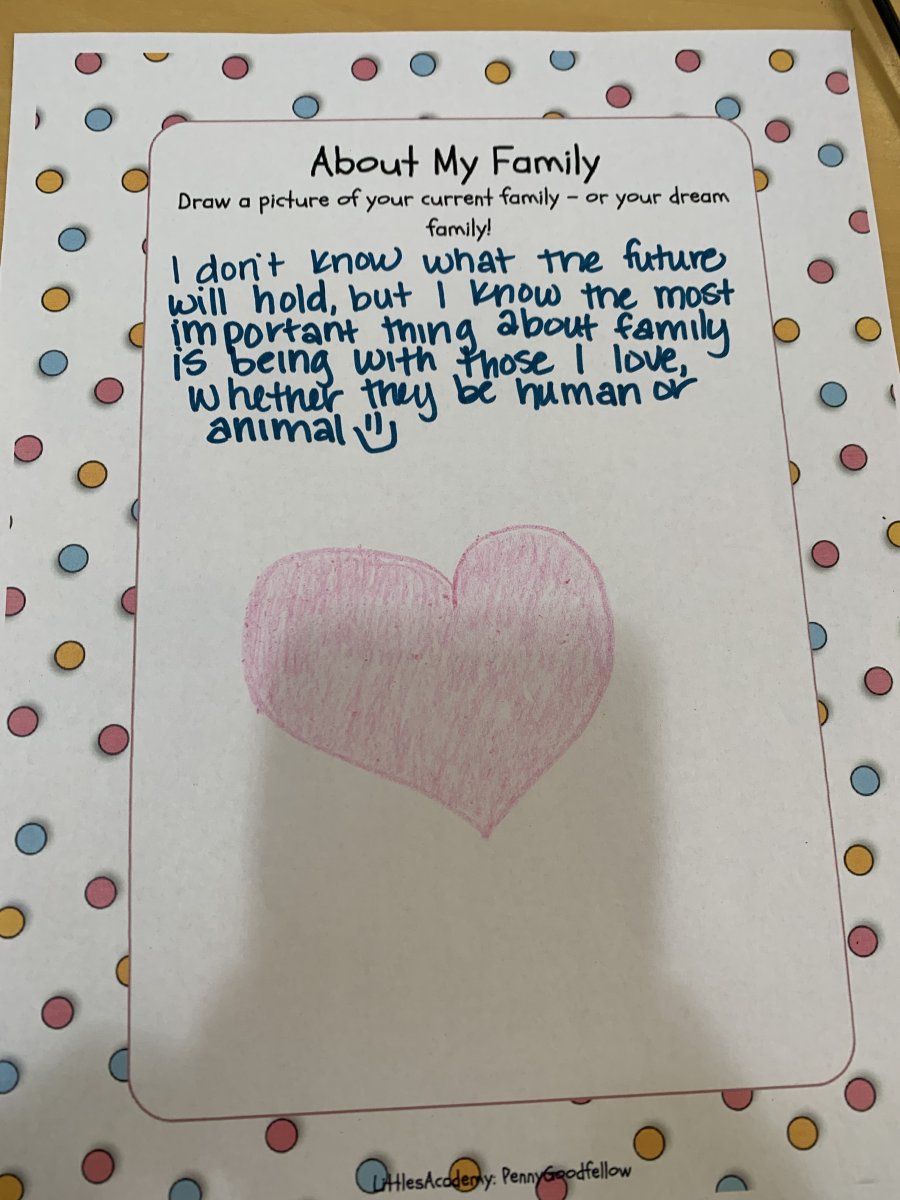 About My Family
Draw a picture of your current family – or your dream
family!
I don't know what the future
will hold, but I know the most
important thing about family
is being with those I love,
whether they be human or
animal
LittlesAcademy: PennyGoodfellow